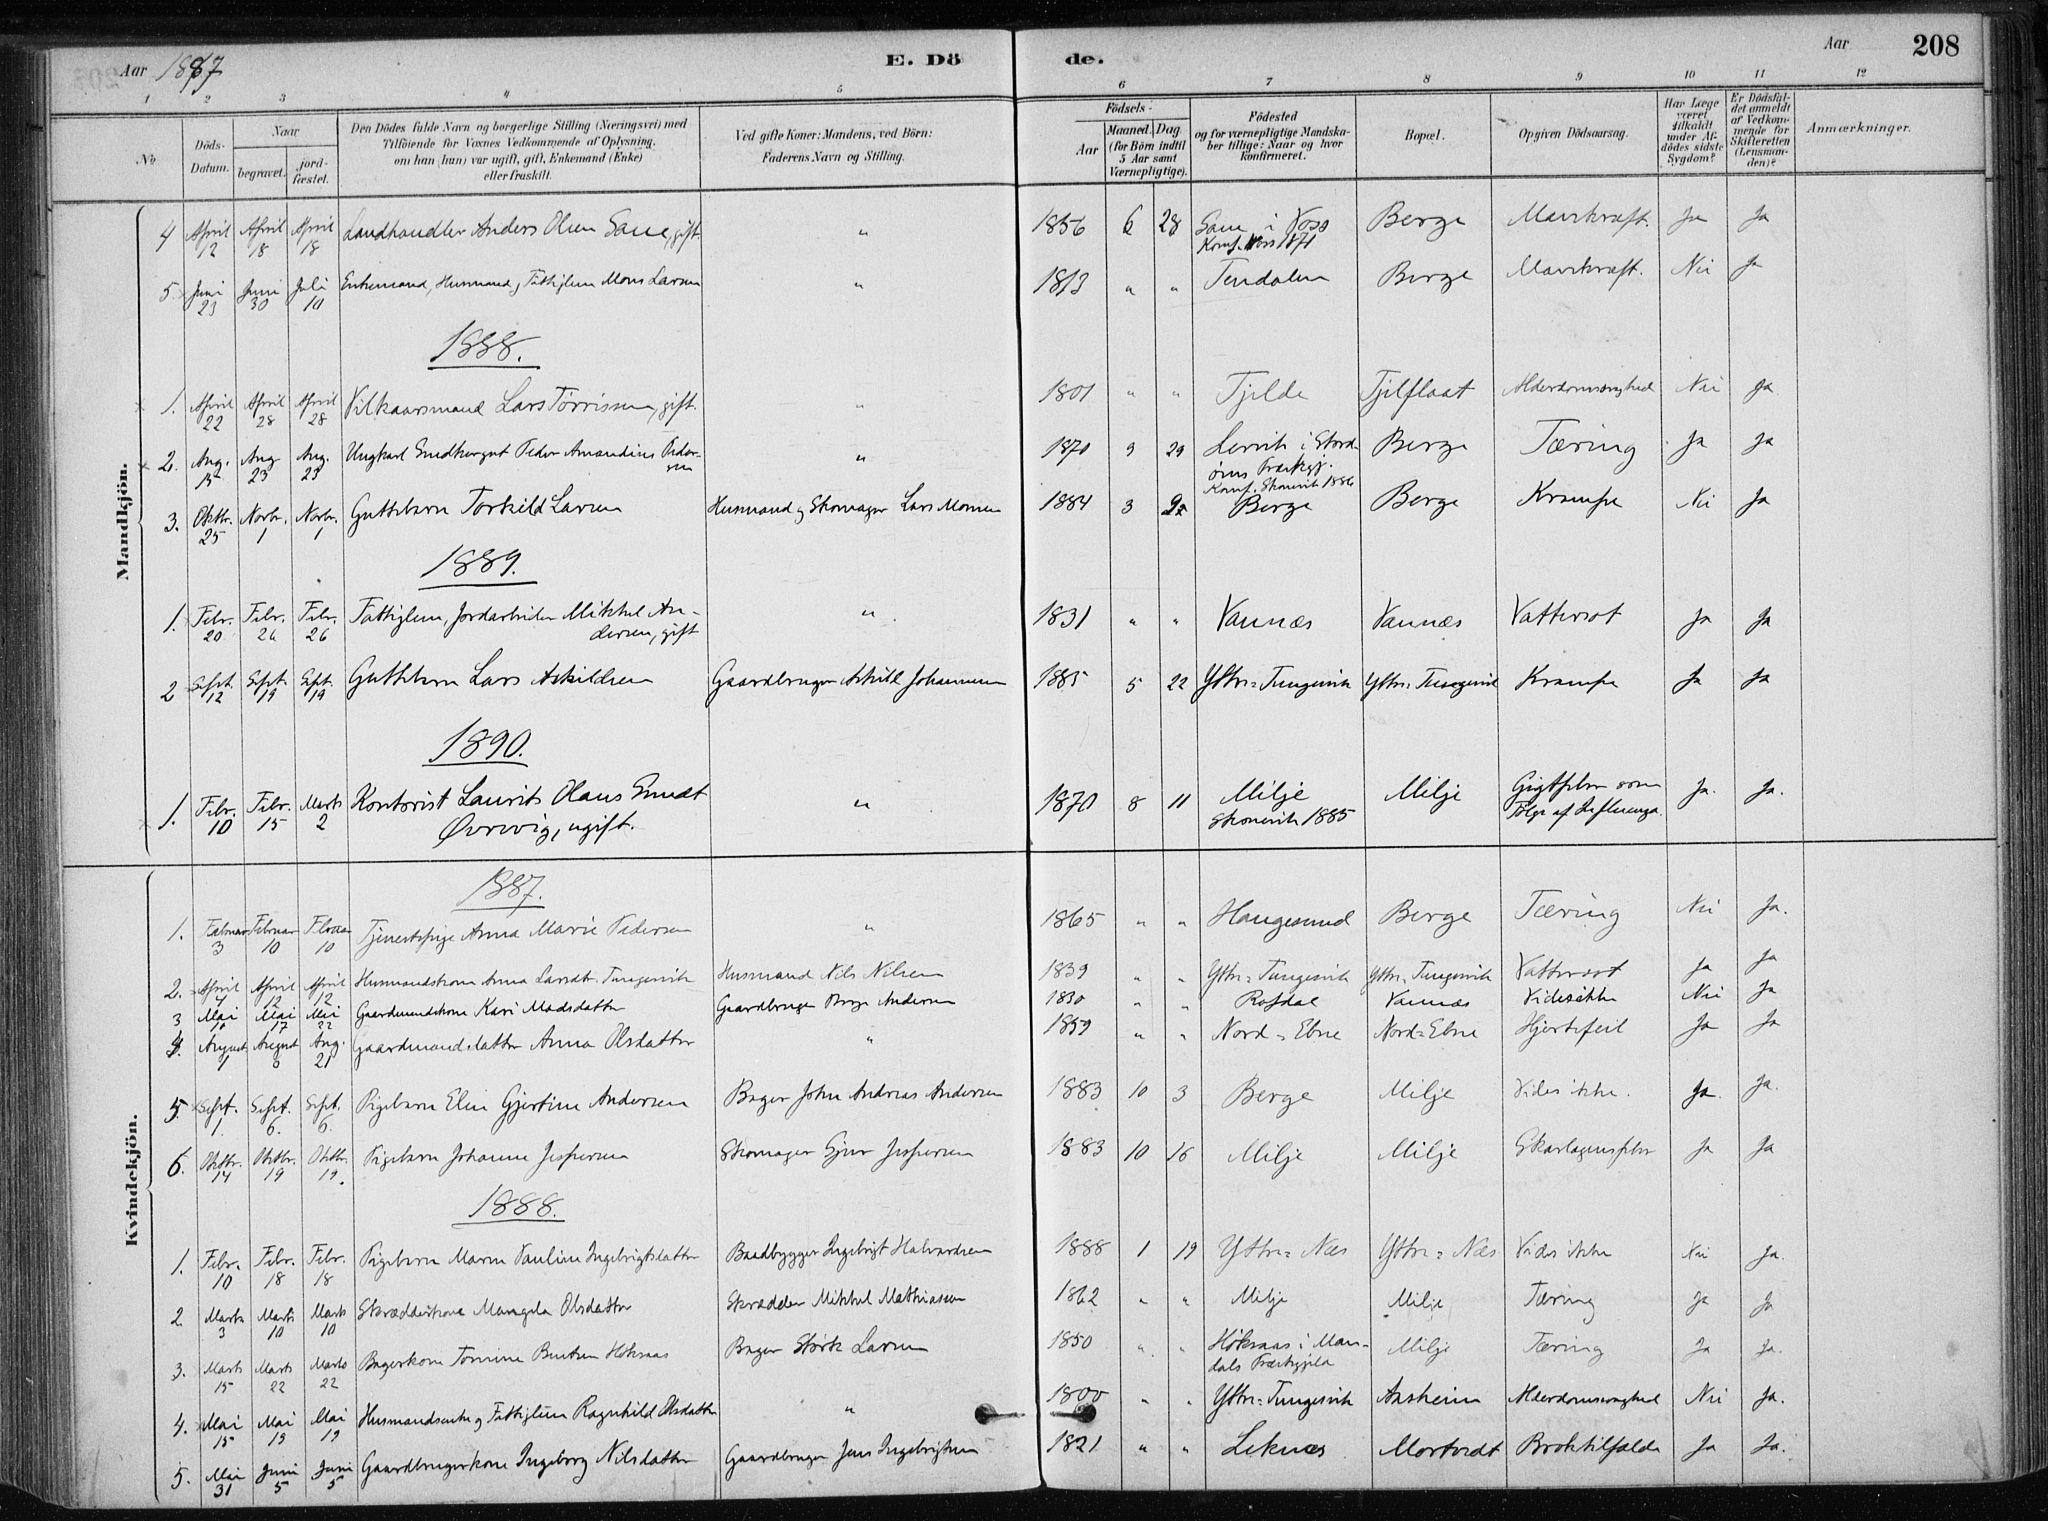 Aar 1887 E. Döde. Aar 208
1 2 3 4 5 6 7 8 9 10 11 12
No
Döds-Datum.
Naar
begravet.
jordfæstet.
Den Dödes fulde Navn og borgerlige Stilling (Næringsvei) med
Tilföiende for Voxnes Vedkommende af Oplysning,
om han (hun) var ugift, gift, Enkemand (Enke)
eller fraskilt.
Ved gifte Koner: Mandens, ved Börn:
Faderens Navn og Stilling.
Födsels-
Aar
Maaned. Dag
(for Börn indtil
5 Aar samt
Værnepligtige).
Födested
og for værnepligtige Mandskaber tillige: Naar og hvor
konfirmeret.
Bopæl.
Opgiven Dödsaarsag.
Har Læge
været
tilkaldt
under Afdödes sidste
Sygdom?
Er Dödsfaldet anmeldt
af Vedkommende for
Skifteretten
(Lensmanden)?
Anmærkninger.
Mandkjön.
4 April 12 April 18 April 18 Landhandler Anders Olsen Saue, gift. " 1856 6 28 Saue i Voss Konf. Voss 1871 Berge Mavekræft. Ja Ja
5. Juni 23 Juni 30 Juli 10 Enkemand, Husmand, Fattiglem Mons Larsen " 1813 " " Tendalen Berge Mavekræft. Nei Ja
1888.
1. April 22 April 28 April 28 Vilkaarsmand Lars Tørrissen, gift. " 1801 " " Tjelde Tjelflaat Alderdomssvaghed Nei Ja
2. Aug. 15 Aug 23 Aug. 23 Ungkarl Peder Amandius Pedersen " 1870 9 29 Lervik i Stordøens Præstegj. Konf. Skonevik 1886 Berge Tæring Ja Ja
3. Oktbr. 25 Novbr. 1 Novbr. 1 Guttebarn Torkild Larsen Husmand og Skomager Lars Monsen 1884 3 Berge Berge Krampe Nei Ja
1889.
1. Febr. 20 Febr. 26 Febr. 26 Fattiglem, Jordarbeider Mikkel Andersen, gift " 1831 " " Vannæs Vannæs Vattersot Ja Ja
2 Sept. 12 Sept. 19 Sept. 19 Guttebarn Lars Askildsen Gaardbruger Askild Johannesen 1885 5 22 Yttre=Tungesvik Yttre=Tungesvik Krampe Ja Ja
1890.
1. Febr. 10 Febr. 15 Marts 2 Kontorist Laurits Olaus Smedt Øvrevig, ugift. " 1870 8 11 Milje Skonevik 1885 Milje Gigtfeber som Følge af Influenza. Ja. Ja.
Kvindekjön.
1887.
1. Februar 3 Februar 10 Februar 10 Tjenestepige Anna Marie Pedersen " 1865 " " Haugesund Berge Tæring Nei Ja.
2. April 4 April 12 April 12 Husmandskone Anna Larsdtr. Tungesvik Husmand Nils Nilsen 1839 " " Yttre=Tungesvik Yttre=Tungesvik Vattersot Ja Ja
3 Mai 10 Mai 17 Mai 22 Gaardmandskone Kari Madsdatter Gaardbruger Børge Andersen 1830 " " Rafdal Vannæs Vides ikke Nei Ja
4. August 1 August 8 Aug. 21 Gaardmandsdatter Anna Olsdatter " 1859 " " Nord=Ebne Nord=Ebne Hjertefeil Ja Ja
5. Sept. 1. Sept. 6. Sept. 6. Pigebarn Elen Gjertine Andersen Bager John Andreas Andersen 1883 10 3 Berge Milje Vides ikke. Ja. Ja.
6. Oktbr. 14 Oktbr. 19 Oktbr. 19. Pigebarn Johanne Jespersen Skomager Ejner Jespersen 1883 10 16 Milje Milje Skarlagensfeber Ja Ja
1888.
1. Febr. 10 Febr. 18 Febr. 18 Pigebarn Maren Pauline Ingebrigtsdatter Baadbygger Ingebrigt Halvardsen 1888 1 19 Yttre=Næs Yttre=Næs Vides ikke Nei Ja.
2. Marts 3 Marts 10 Marts 10 Skrædderkone Mangela Olsdatter Skrædder Mikkel Mathiassen 1862 " " Milje Milje Tæring Ja Ja
3. Marts 15 Marts 22 Marts 22 Bagerkone Tomine Bentsen Høksaas Bager Størk Larsen 1850 " " Høksaas i Mandals Præstegjeld Milje Tæring Ja Ja.
4. Mai 15 Mai 19 Mai 19 Husmandsenke og Fattiglem Ragnhild Olsdatter " 1800 " " Yttre=Tungesvik Aasheim Alderdomssvaghed Nei Ja.
5. Mai 31 Juni 5 Juni 5 Gaardbrugerkone Ingeborg Nilsdatter Gaardbruger Jens Ingebrigtsen 1821 " " Leknæs Mortvedt Broktilfælde Ja Ja.